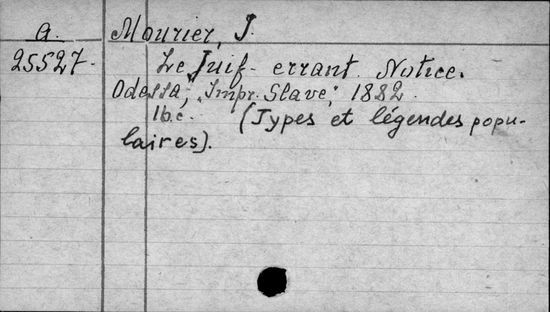 A. Mourier, J.
25527. Le Juif-errant. Notice.
Odessa, "Impr. Slave", 1882.
16.c. (Types et légendes popu-
laires).